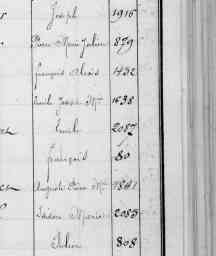 Joseph 1916
Pierre Marie Julien 829
François Alexis 1432
Emile Jean Mie 1638
Emile 2087
François 80
Auguste Pierre Mie 1841
Isidore Marie 2085
Julien 808